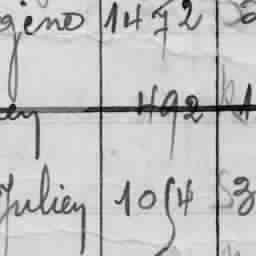 geno 1472
ey 492
Juliey 1054 3